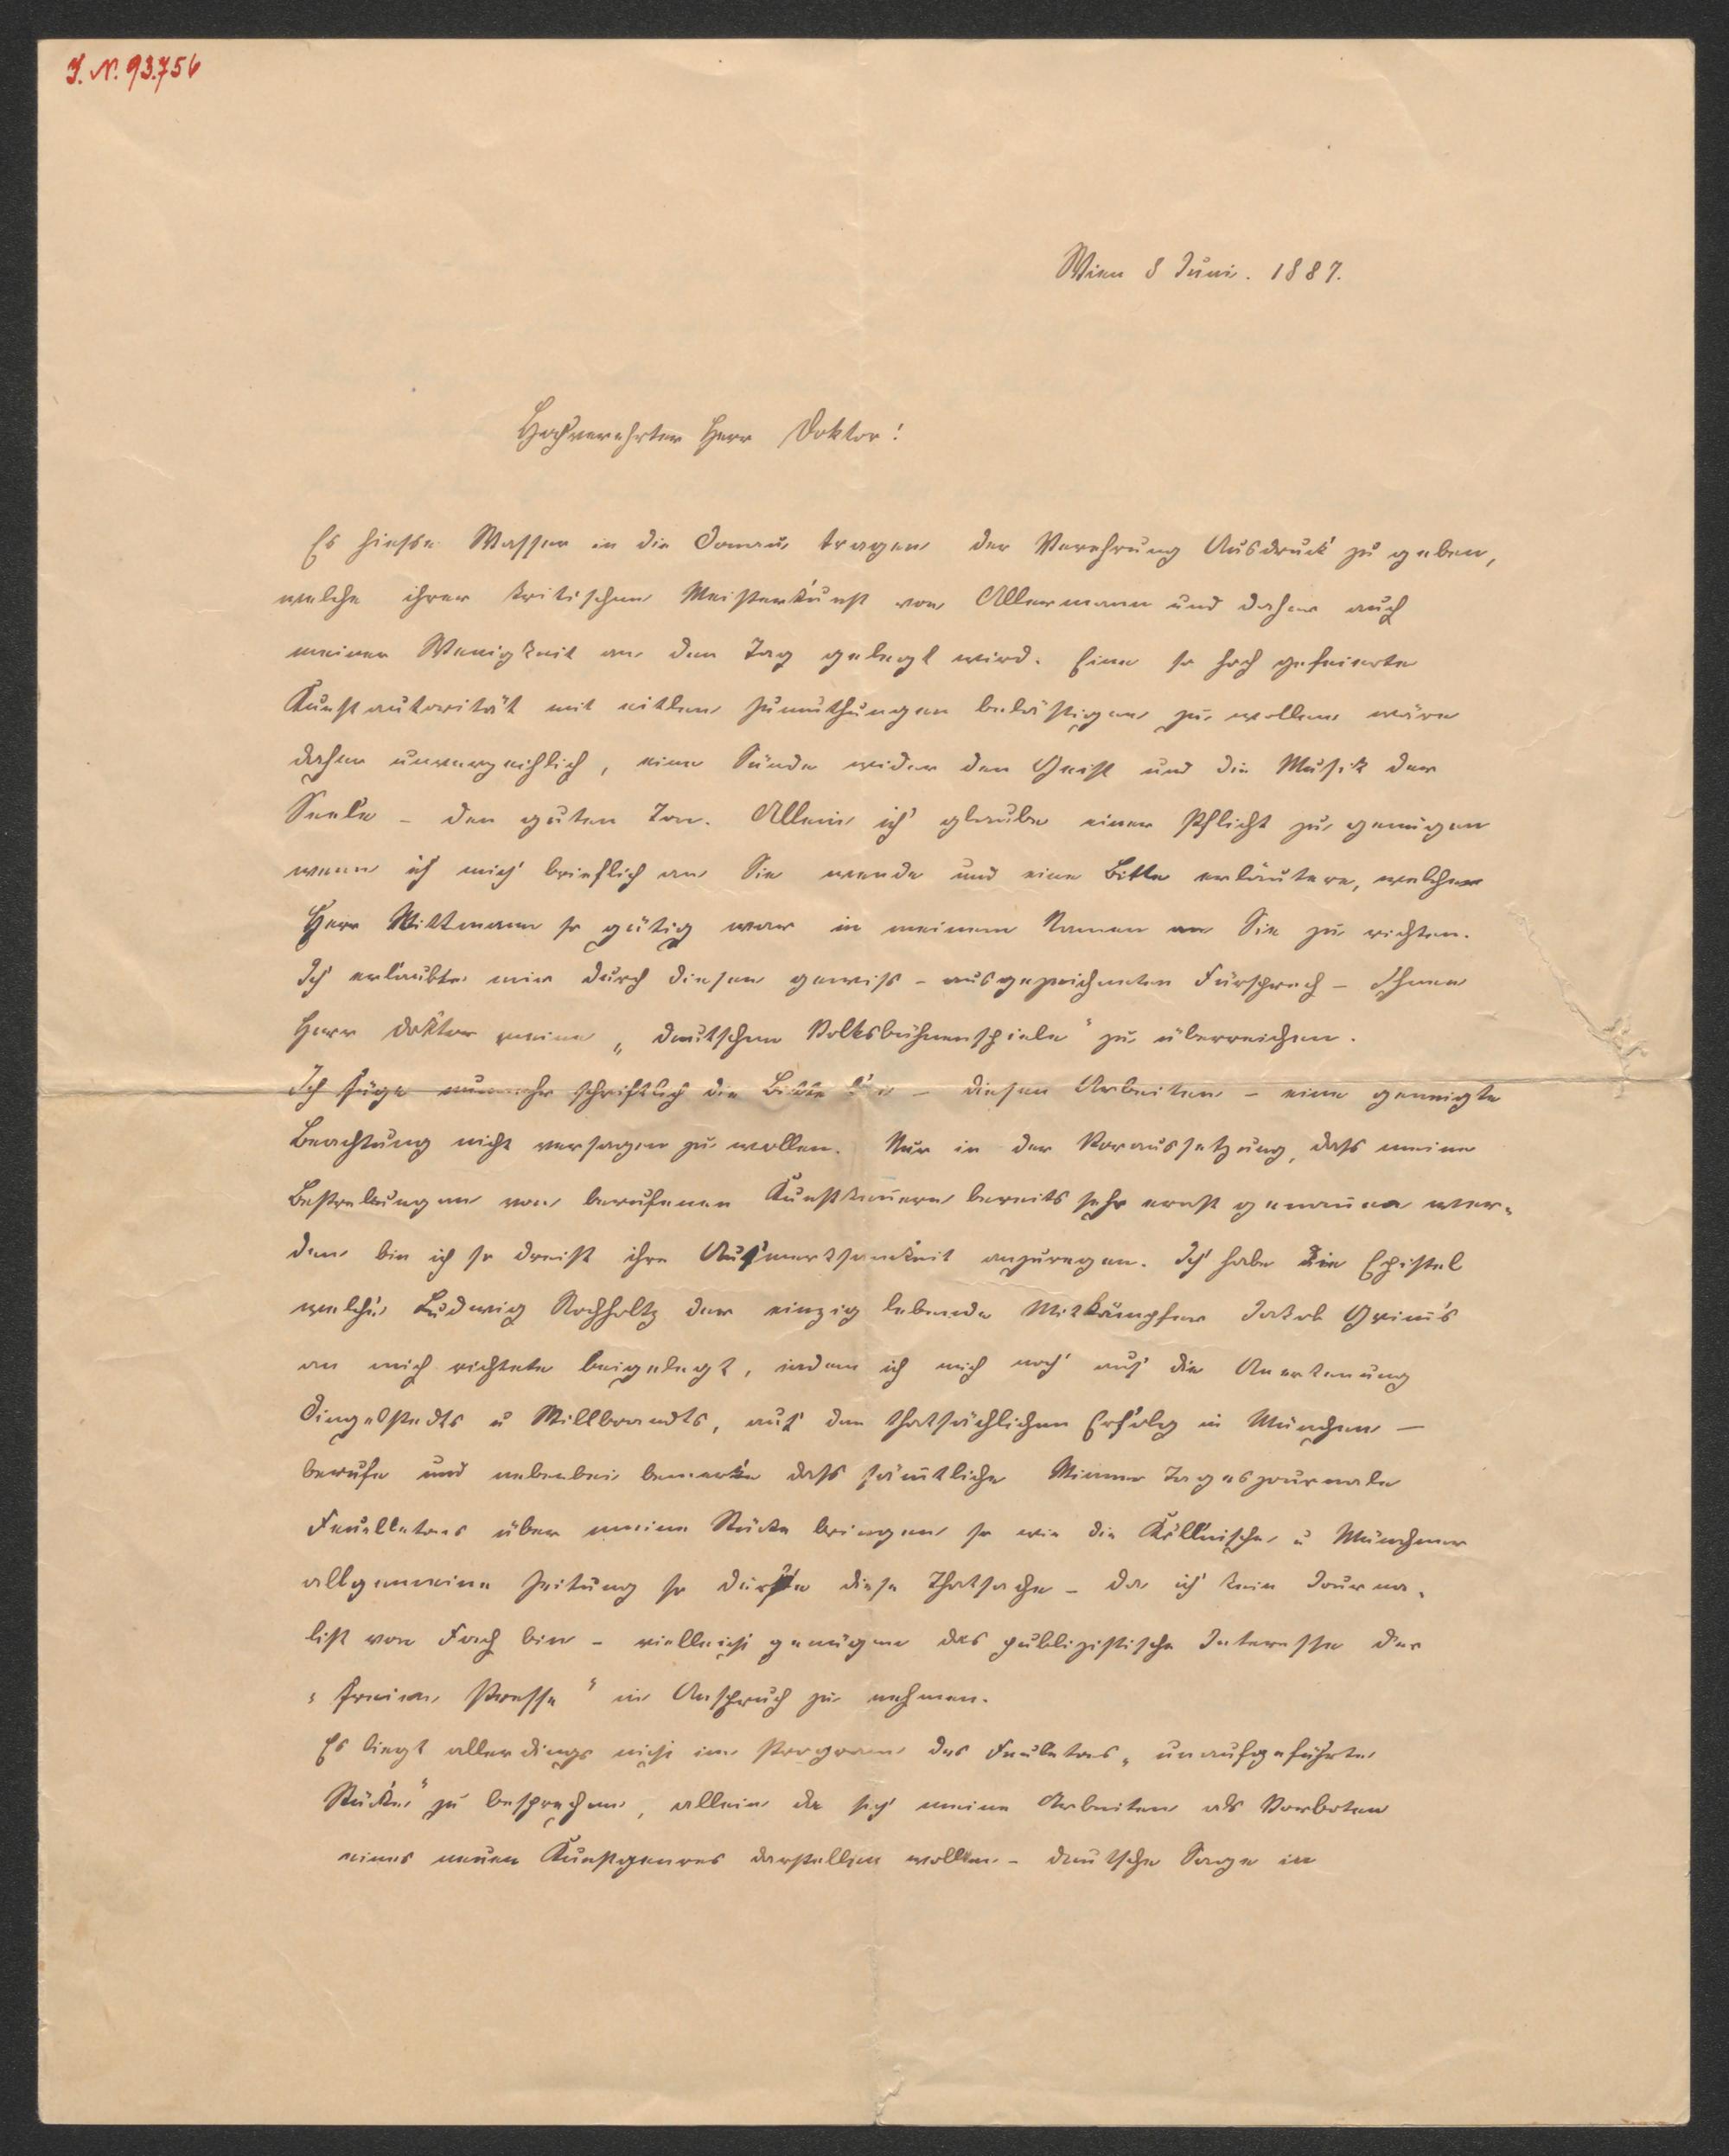 I. N. 93.756
Wien 8 Juni. 1887.
Hochverehrter Herr Doktor!
Es hiesse Wasser in die Donau tragen der Verehrung Ausdruck zu geben,
welche ihrer kritischen Meisterkunst von Allermann und daher auch
meiner Wenigkeit an den Tag gelegt wird. Eine so hoch gefeierte
Kunstautorität mit eitlen Zumuthungen belästigen zu wollen wäre
daher unverzeihlich, eine Sünde wider den Geist und die Musik der
Seele – den guten Ton. Allein ich glaube einer Pflicht zu genügen
wenn ich mich brieflich an Sie wende und eine Bitte erläutere, welche
Herr Wittmann so gütig war in meinem Namen an Sie zu richten.
Ich erlaubte mir durch diesen gewiss – ausgezeichneten Fürsprech – Ihnen
Herr Doktor meine „deutschen Volksbühnenspiele" zu überreichen.
Ich füge nunmehr schriftlich die Bitte bei – diesen Arbeiten – eine geneigte
Beachtung nicht versagen zu wollen. Nur in der Voraussetzung, dass meine
Bestrebungen von berufenen Kunstkeñern bereits sehr ernst genom̄en wer-
den bin ich so dreist ihre Aufmerksamkeit anzuregen. Ich habe die Epistel
welche Ludwig Rochholtz der einzig lebende Mitkämpfer Jakob Grim̄s
an mich richtete beigelegt, indem ich mich noch auf die Anerkenung
Dingelstedts u Willbrandts, auf den thatsächlichen Erfolg in München –
berufe und nebenbei bemerke dass säm̄tliche Wiener Tagesjournale
Feuilletons über meine Stücke bringen so wie die Köllnische u Münchner
allgemeine Zeitung so dürfte diese Thatsache – da ich kein Journa-
list von Fach bin – vielleicht genügen das publizistische Interesse der
„freien Presse" in Anspruch zu nehmen.
Es liegt allerdings nicht im Program des Feuletons „unaufgeführte
Stücke" zu besprechen, allein da sich meine Arbeiten als Vorboten
eines neuen Kunstgenres darstellen wollen – deutsche Sage in